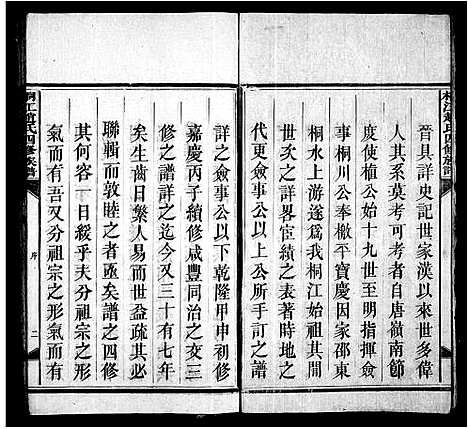 桐江趙氏四修族譜
晉具詳史記世家漢以來世多偉
人其系莫考可考者自唐嶺南節
度使植公始十九世至明指揮僉
事桐川公奉檄平寶慶因家邵東
桐水上游遂為我桐江始祖其間
世次之詳畧宦績之表著時地之
代更僉事公以上公所手訂之譜
詳之僉事公以下乾隆甲申初修
嘉慶丙子續修咸豐同治之交三
修之譜詳之迄今又三十有七年
矣生齒日繁人易而世益疏其為
聯輯而敦睦之者亟矣譜之四修
其何容一日緩乎夫分祖宗之形
氣而有吾又分祖宗之形氣而有
桐江趙氏四修族譜
序
二